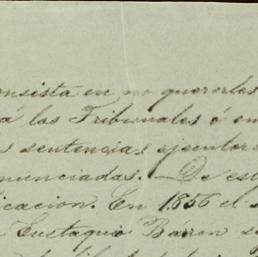 onsista en no quererles
á los Tribunales ó en
s sentencias ejecutor
nunciadas. — De es
icacion. En 1856 el
Eustaquio Barron s